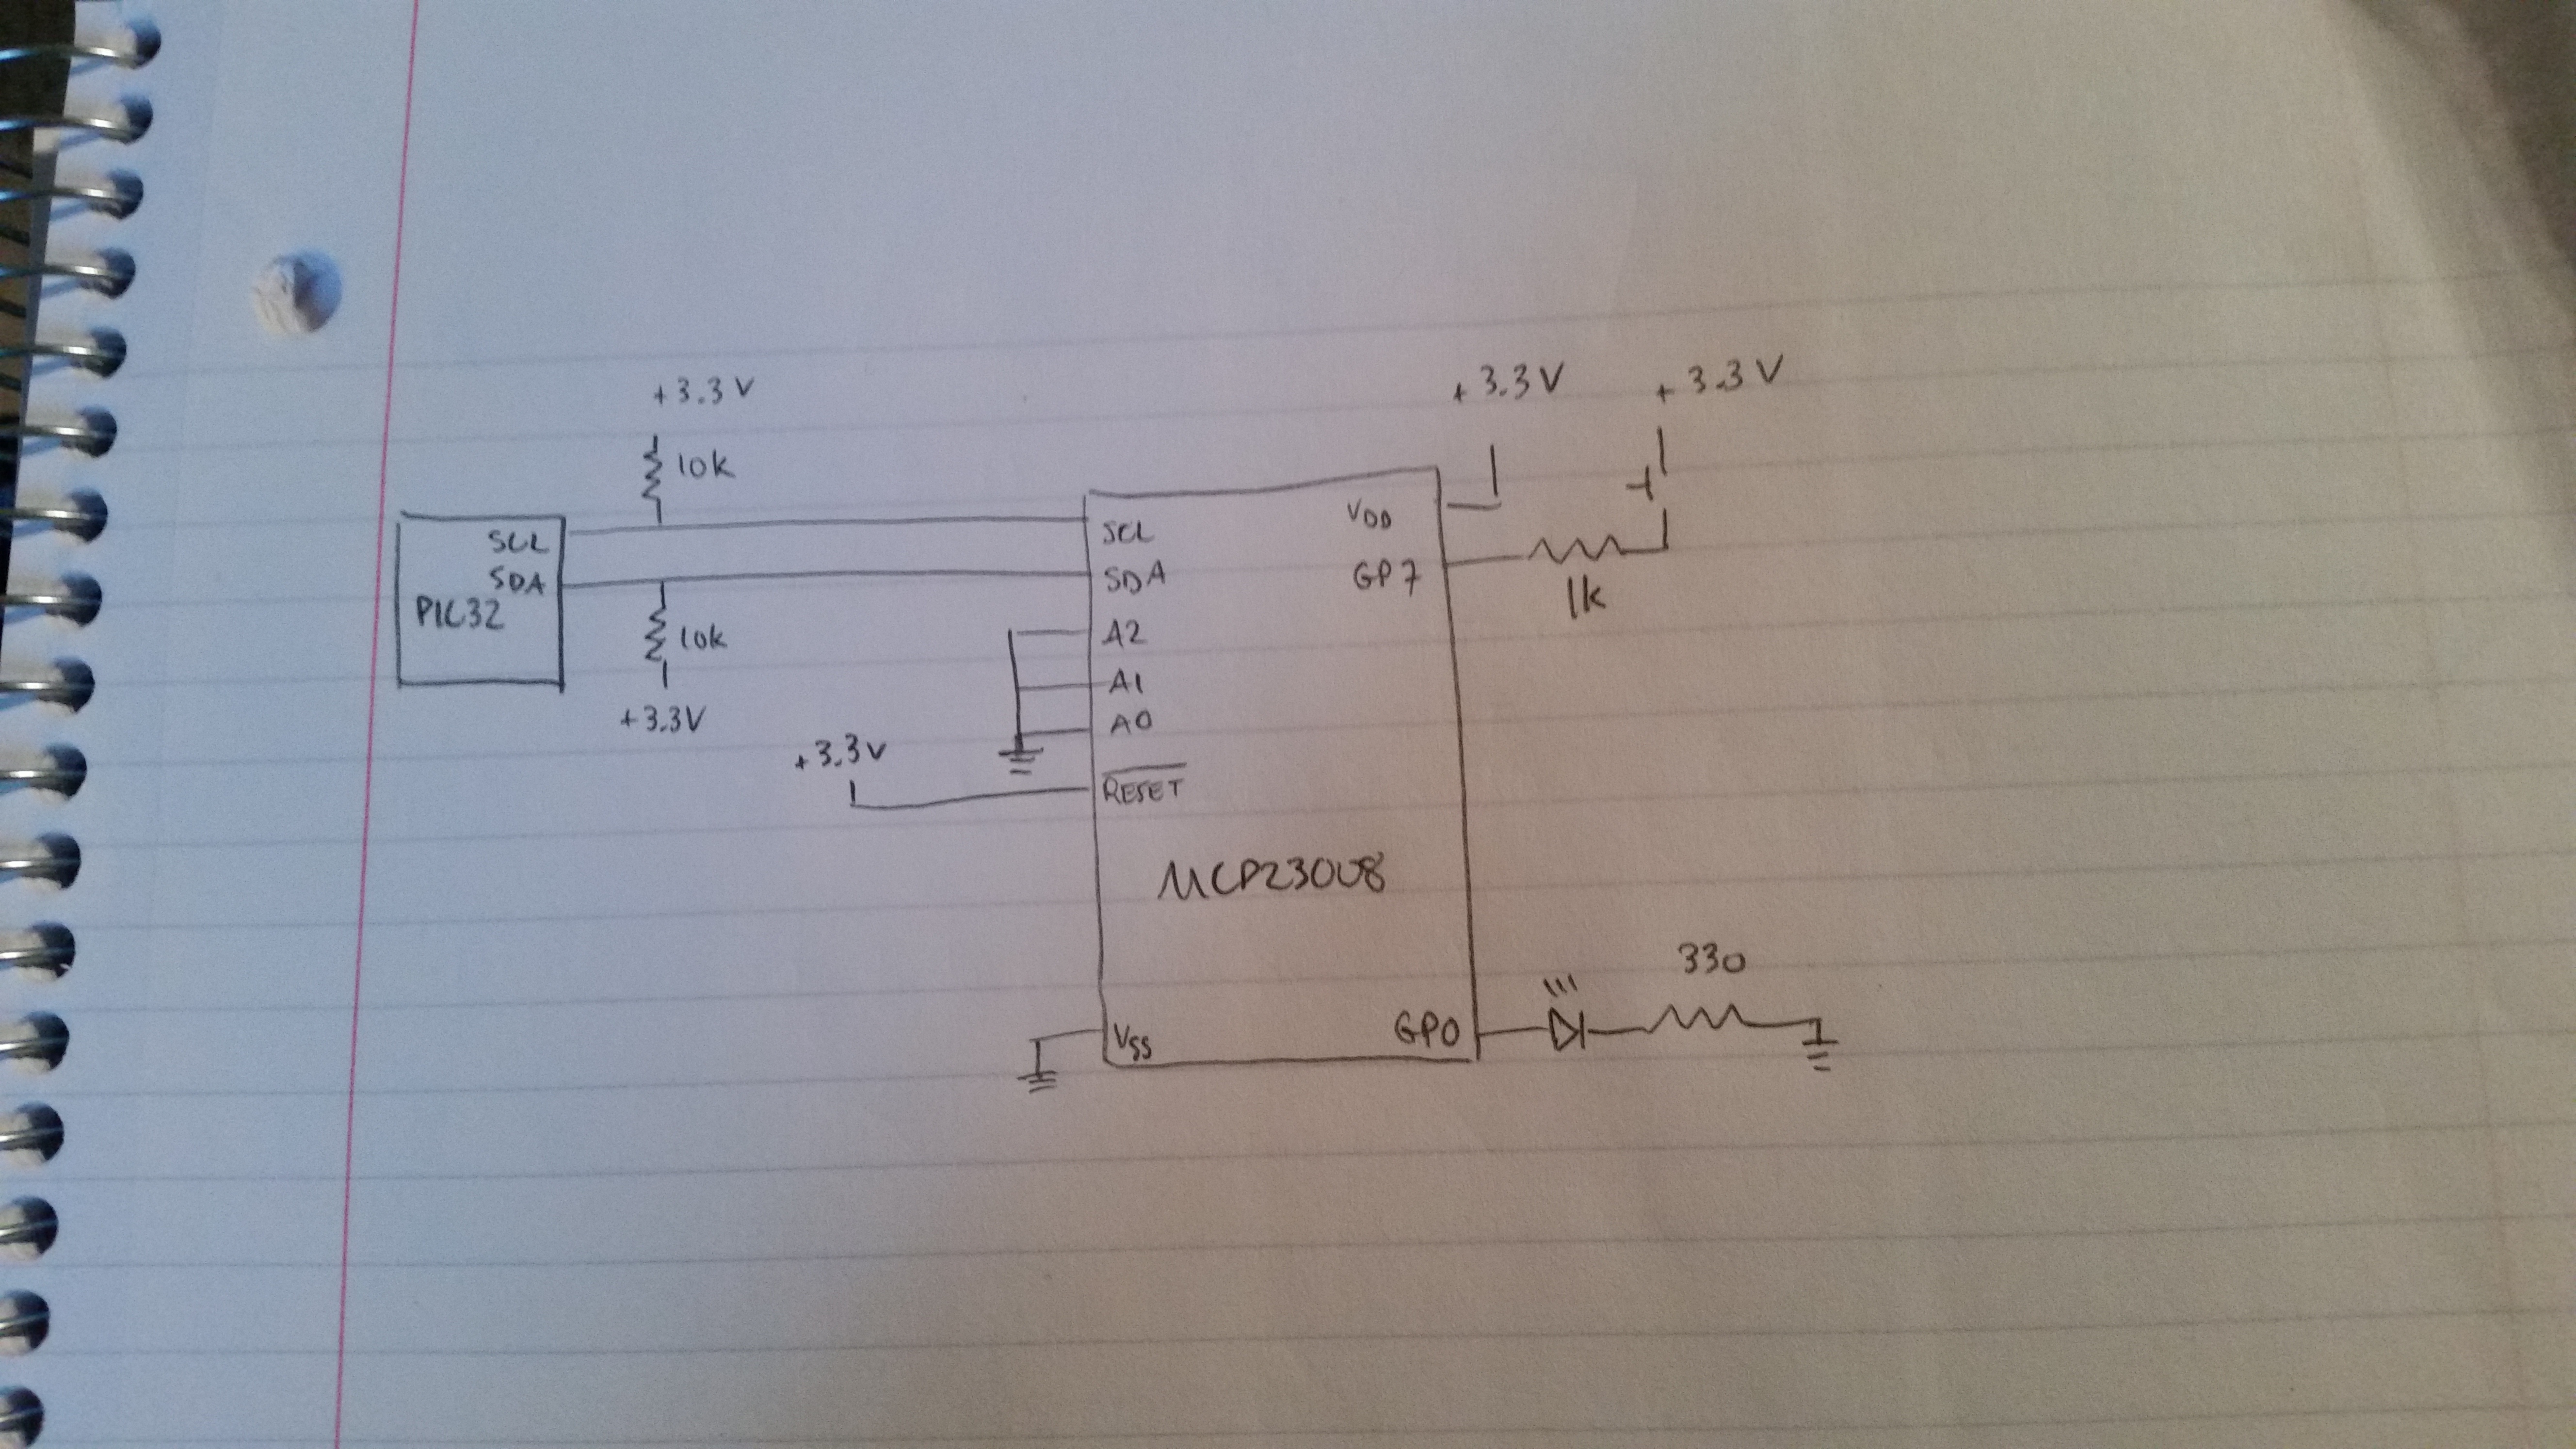 +3.3V
10k
SCL
SDA
PIC32
10k
+3.3V
+3.3V
+3.3V
+3.3V
SCL
SDA
A2
A1
A0
RESET
VDD
GP7
1k
MCP23008
VSS
GP0
330